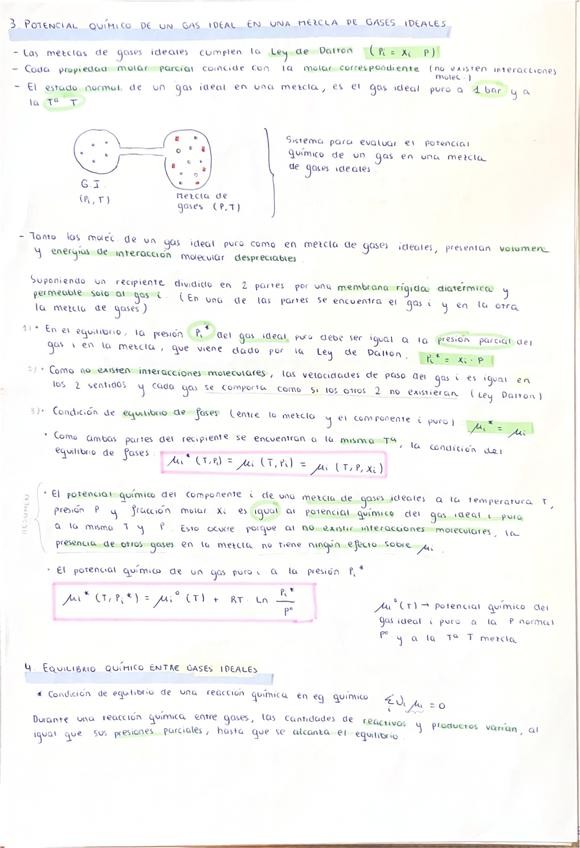 3. POTENCIAL QUÍMICO DE UN GAS IDEAL EN UNA MEZCLA DE GASES IDEALES
- Las mezclas de gases ideales cumplen la Ley de Dalton (Pi = Xi P)
- Cada propiedad molar parcial coincide con la molar correspondiente (no existen interacciones
molec.)
- El estado normal de un gas ideal en una mezcla, es el gas ideal puro a 1 bar y a
la Tª T
G.I.
(Pi, T)
Mezcla de
gases (P, T)
Sistema para evaluar el potencial
químico de un gas en una mezcla
de gases ideales
- Tanto las moléc. de un gas ideal puro como en mezcla de gases ideales, presentan volumen
y energías de interacción molecular despreciables.
Suponiendo un recipiente dividido en 2 partes por una membrana rígida diatérmica y
permeable solo al gas i (En una de las partes se encuentra el gas i y en la otra
la mezcla de gases)
1) • En el equilibrio, la presión Pi* del gas ideal puro debe ser igual a la presión parcial del
gas i en la mezcla, que viene dado por la Ley de Dalton. Pi* = xi · P
2) • Como no existen interacciones moleculares, las velocidades de paso del gas i es igual en
los 2 sentidos y cada gas se comporta como si los otros 2 no existieran (Ley Dalton)
3) • Condición de equilibrio de fases (entre la mezcla y el componente i puro) μi* = μi
• Como ambas partes del recipiente se encuentran a la misma Tª, la condición del
equilibrio de fases: μi* (T, Pi) = μi (T, Pi) = μi (T, P, xi)
RESUMEN
• El potencial químico del componente i de una mezcla de gases ideales a la temperatura T,
presión P y fracción molar Xi es igual al potencial químico del gas ideal i puro
a la misma T y P. Esto ocurre porque al no existir interacciones moleculares, la
presencia de otros gases en la mezcla no tiene ningún efecto sobre μi.
• El potencial químico de un gas puro i a la presión Pi*
μi* (T, Pi*) = μi° (T) + RT Ln Pi*/P°
μi° (T) → potencial químico del
gas ideal i puro a la P normal
P° y a la Tª T mezcla
4. EQUILIBRIO QUÍMICO ENTRE GASES IDEALES
* Condición de equilibrio de una reacción química en eq químico Σi νi μi = 0
Durante una reacción química entre gases, las cantidades de reactivos y productos varían, al
igual que sus presiones parciales, hasta que se alcanza el equilibrio.